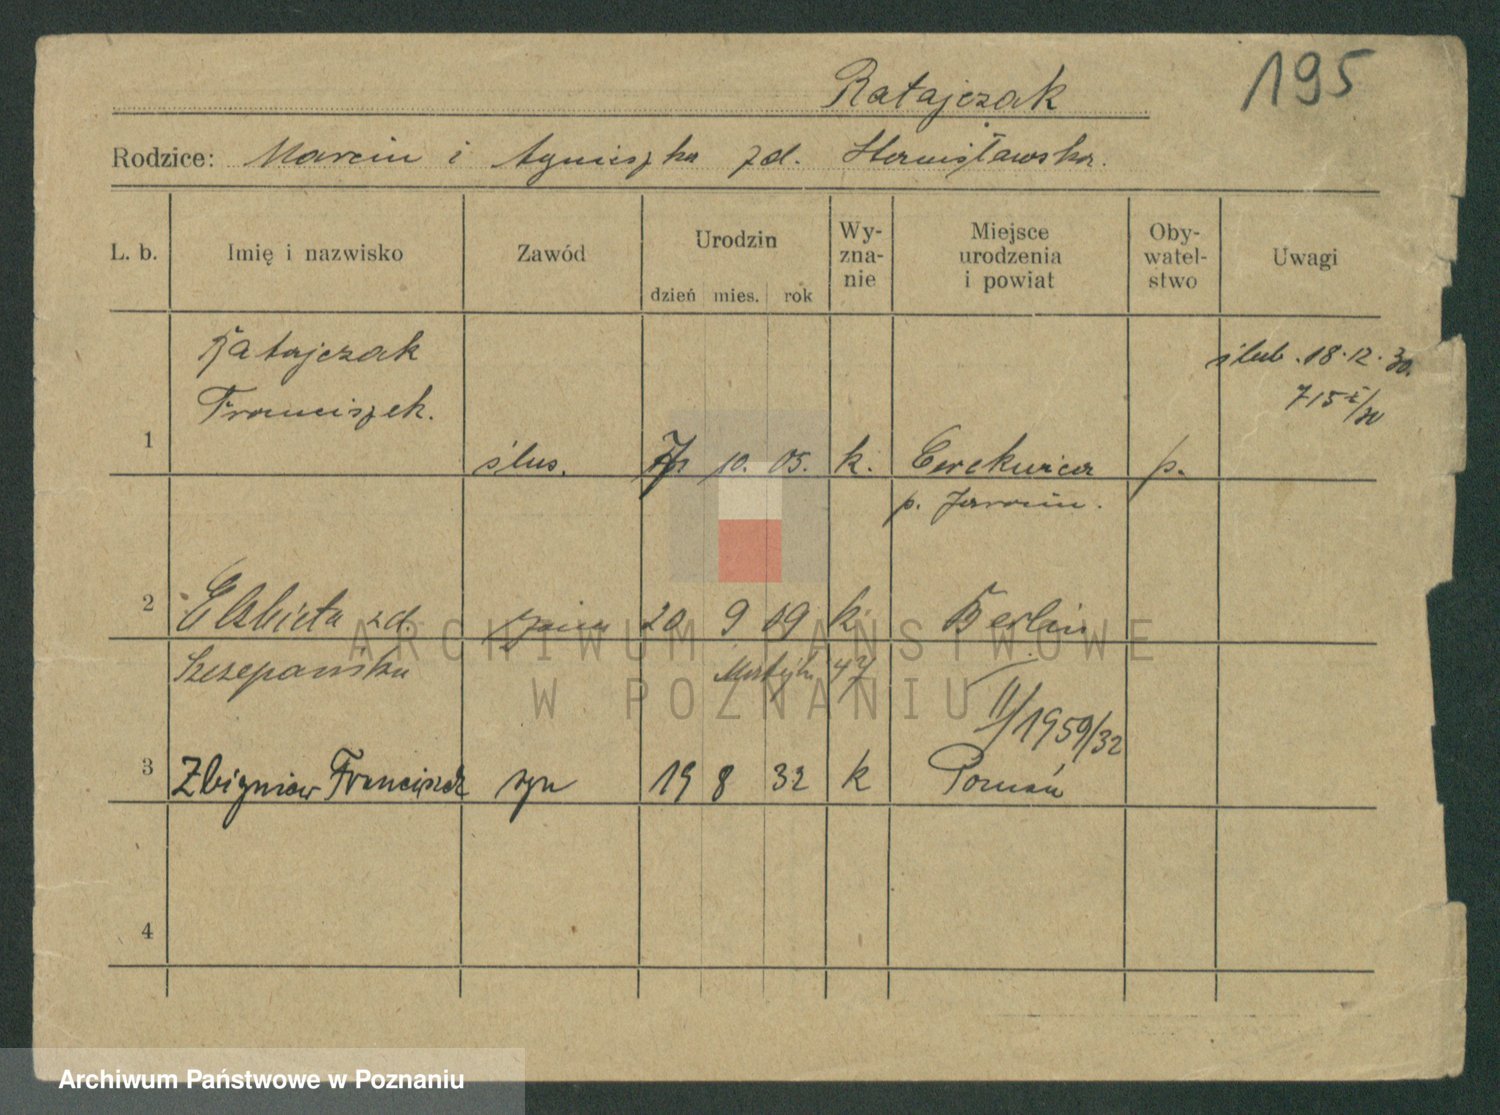 Ratajczak
195
Rodzice: Marcin i Agnieszka zd. Stanisławska.
L. b.
Imię i nazwisko
Zawód
Urodzin
dzień mies. rok
Wy-
zna-
nie
Miejsce
urodzenia
i powiat
Oby-
watel-
stwo
Uwagi
1
Ratajczak
Franciszek.
ślus.
10. 05.
k.
Cerekwica
p. Jarocin.
p.
ślub. 18.12.30.
715
2
Elżbieta zd.
Szczepańska
żona
20 9 09
k.
Berlin
3
Zbigniew Franciszek
syn
19 8 32
k
II/1959/32
Poznań
4
ARCHIWUM PAŃSTWOWE
W POZNANIU
Archiwum Państwowe w Poznaniu